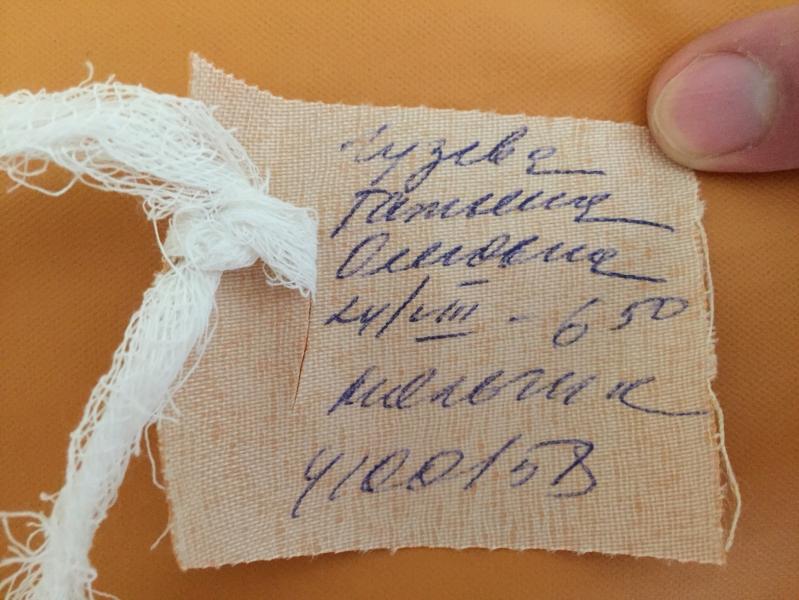 Татьяна
Олеговна
24/VIII - 6 50
мальчик
4100/53